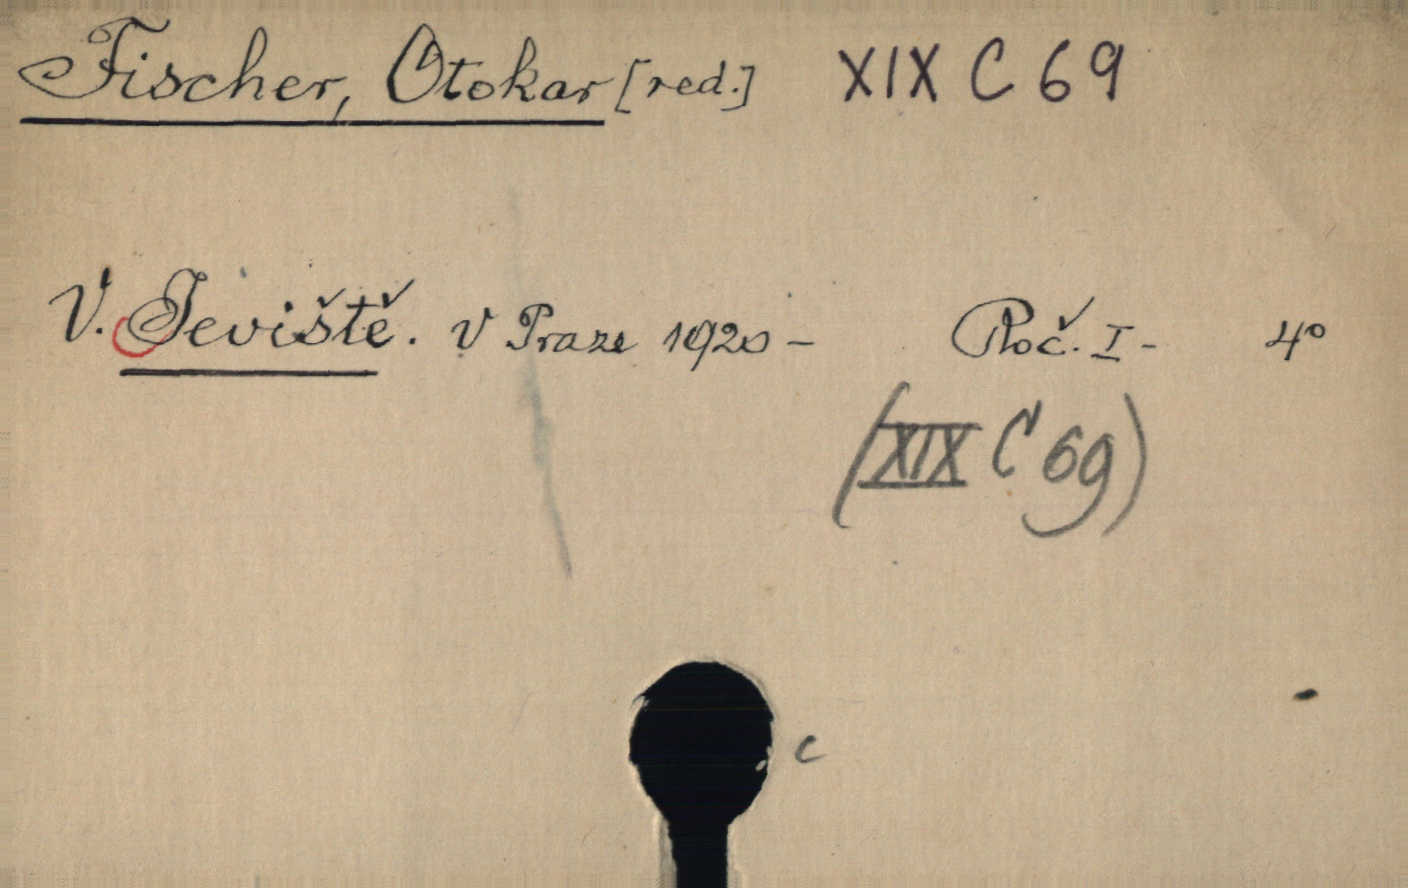 Fischer, Otokar [red.] XIX C 69
V. Jeviště. V Praze 1920 – Roč. I - 4°
(XIX C 69)
c